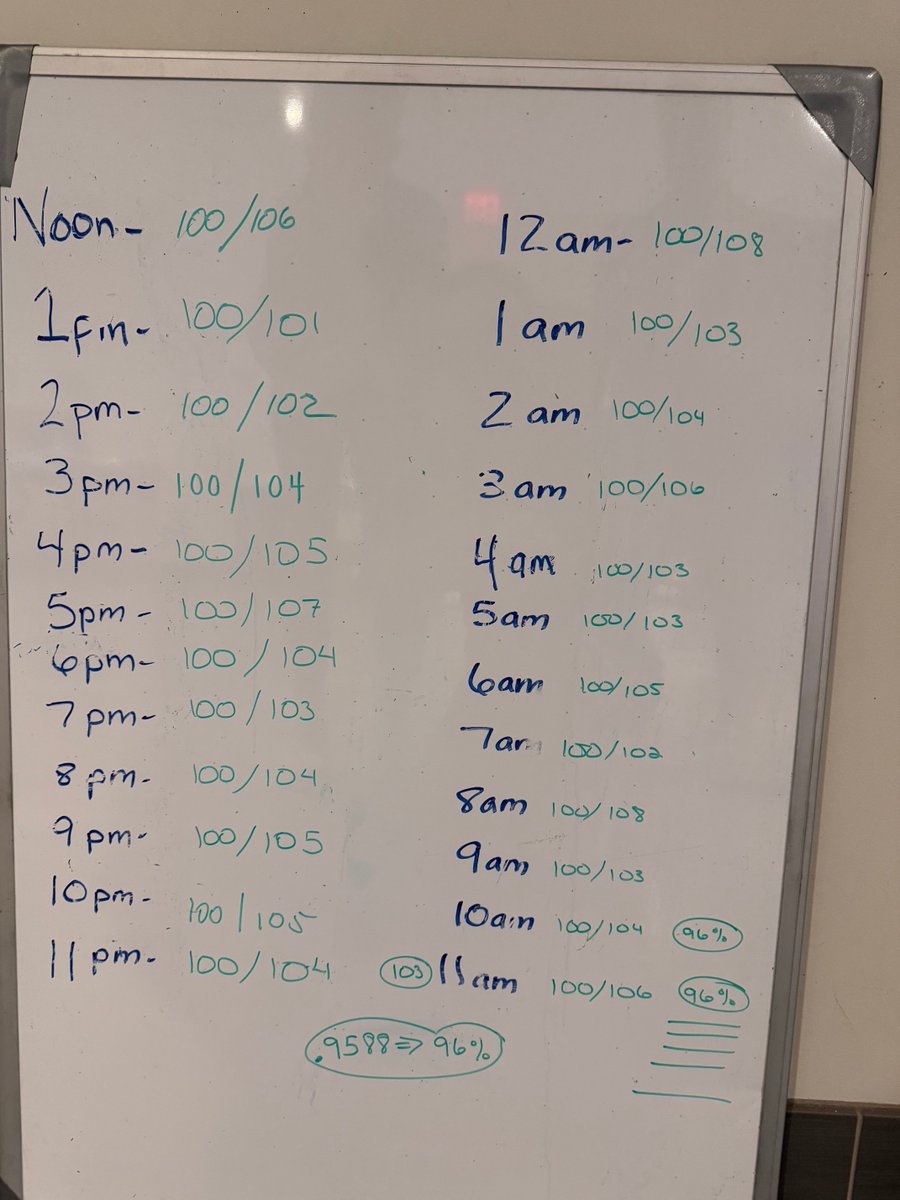 Noon- 100/106
1pm- 100/101
2pm- 100/102
3pm- 100/104
4pm- 100/105
5pm- 100/107
6pm- 100/104
7pm- 100/103
8pm- 100/104
9pm- 100/105
10pm- 100/105
11pm- 100/104
103
.9588⇒96%
12am- 100/108
1am 100/103
2am 100/104
3am 100/106
4am 100/103
5am 100/103
6am 100/105
7am 100/102
8am 100/108
9am 100/103
10am 100/104 96%
11am 100/106 96%